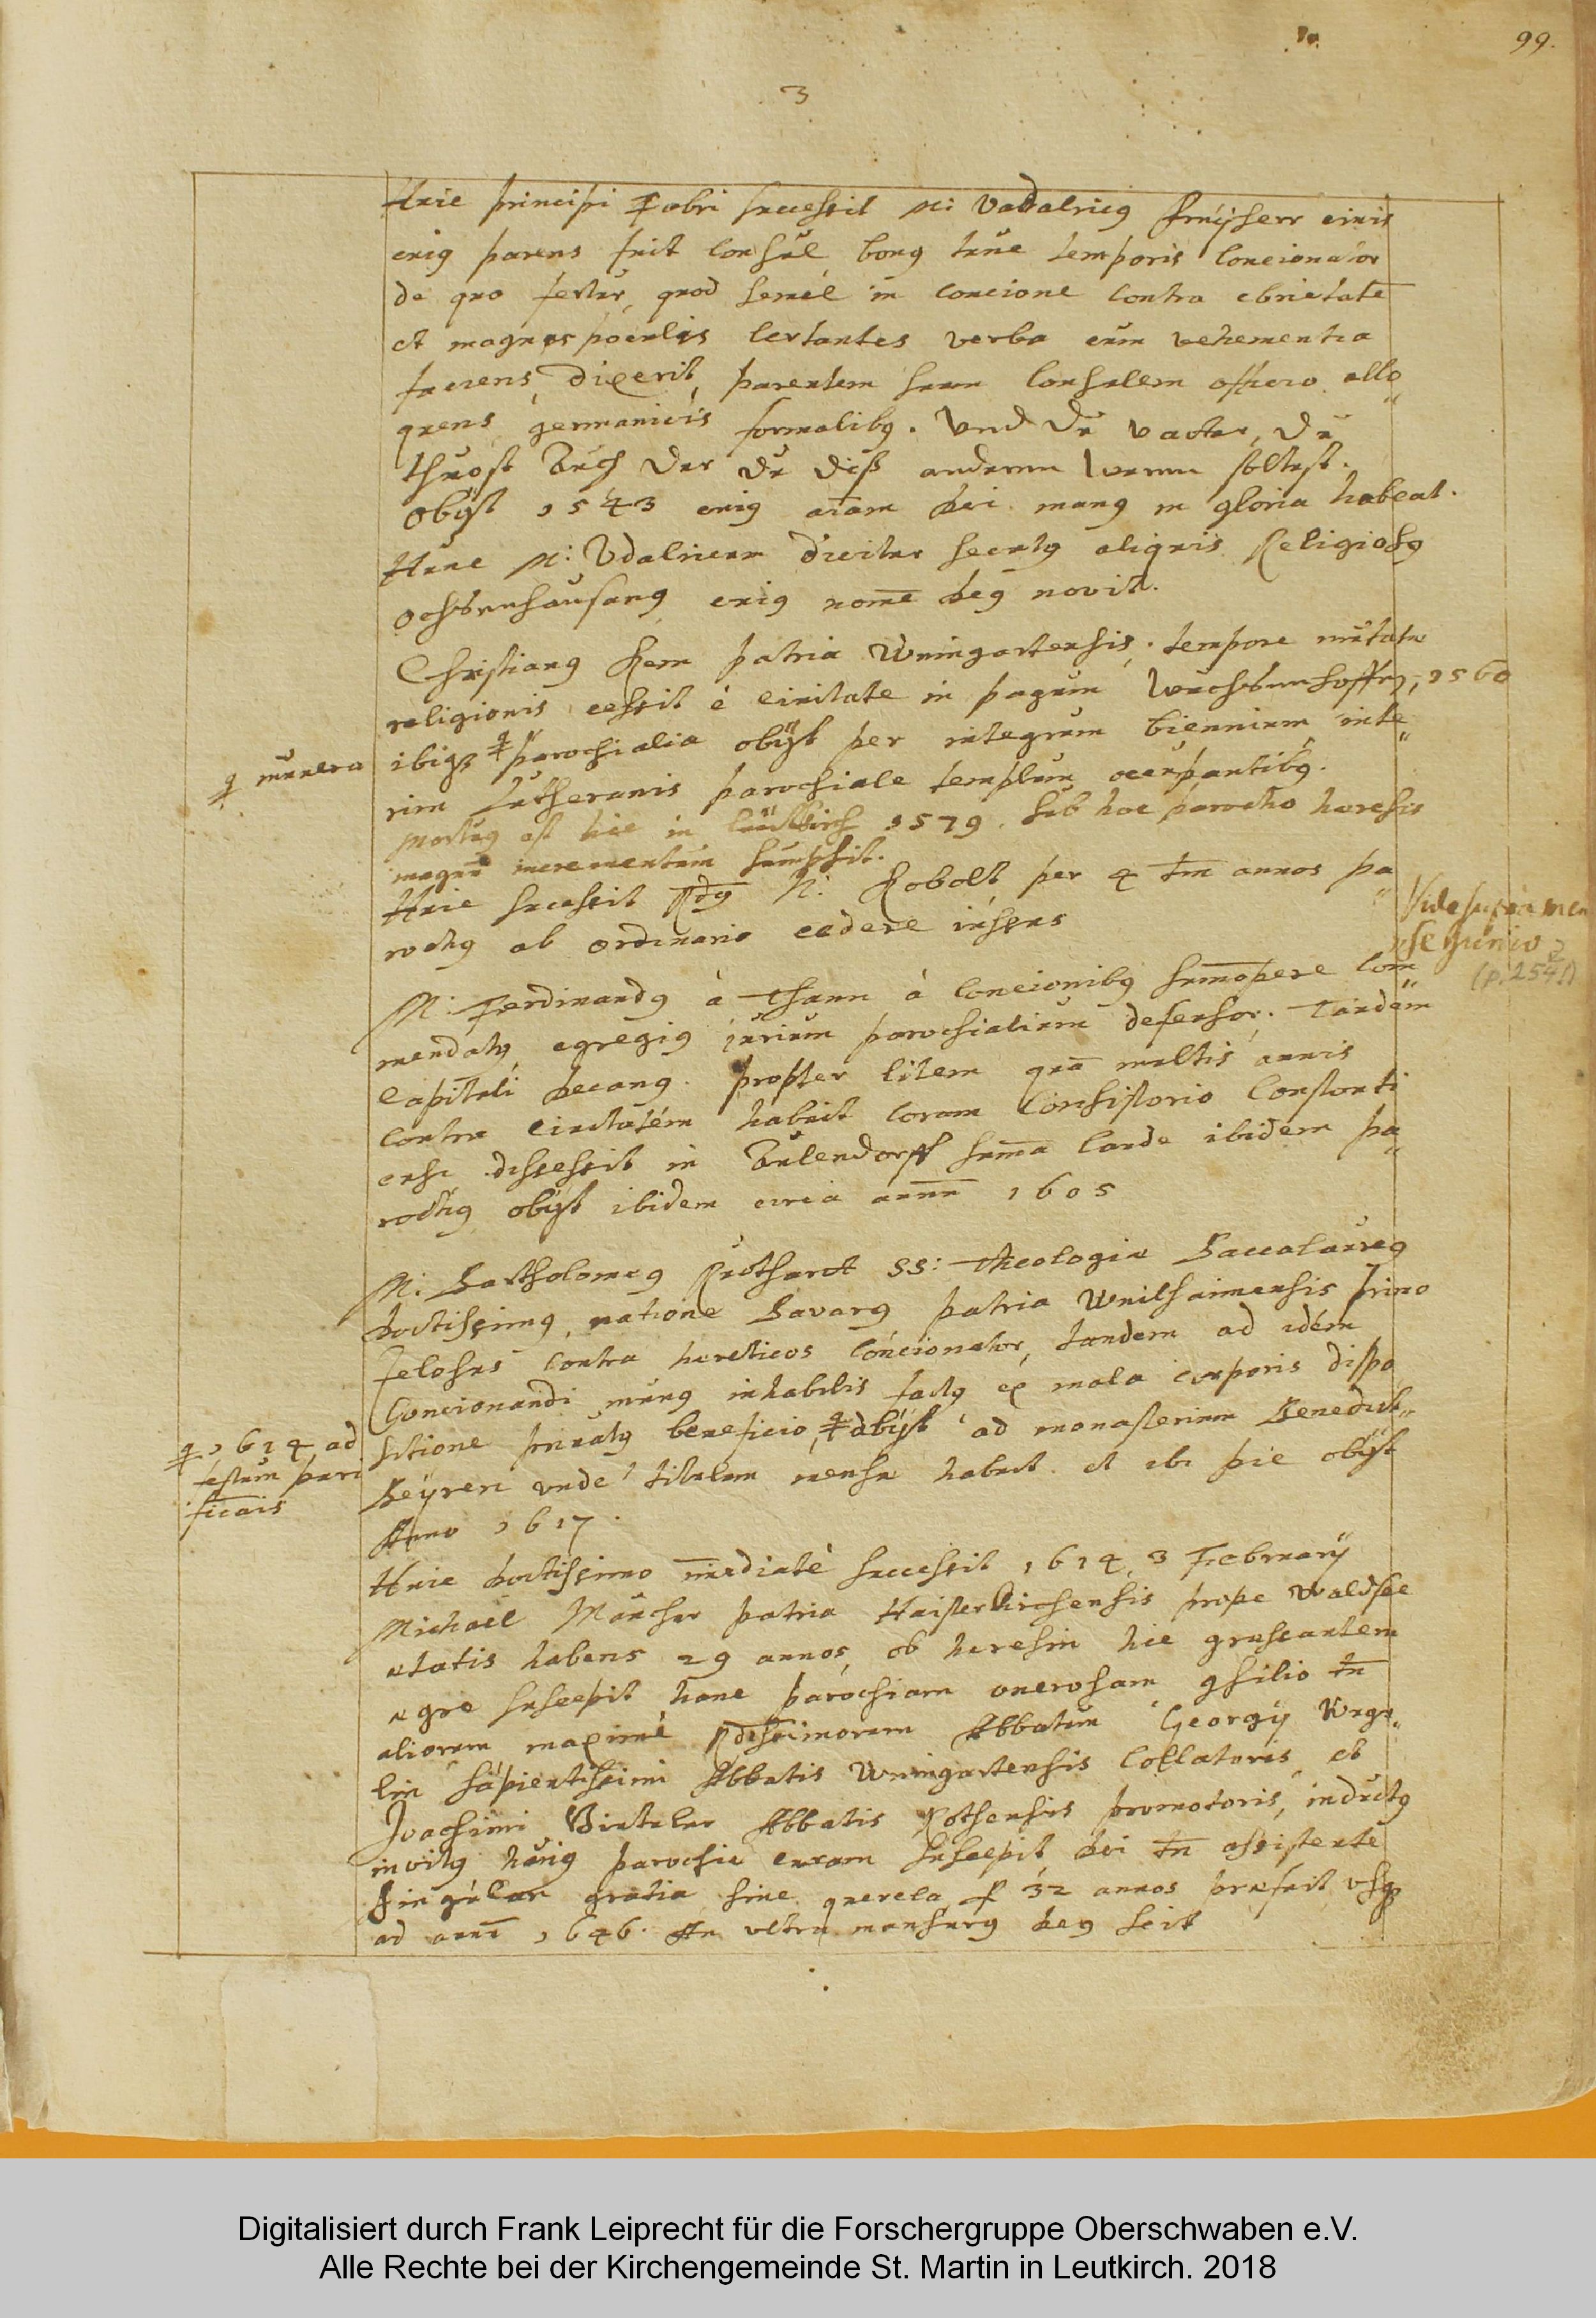 99.
3
Huic principi Fabri successit M: Vdalricg Freyherr ciuis
cuig parens fuit Consul, bong tunc temporis Concionator
de quo fertur, quod semel in concione contra ebrietatē
et magnis poculis certantes verba cum vehementia
faciens, dixerit, parentem suum Consulem assurgo allo"
quens, germanicis formalibg. Vnd Du Vatter, Du
thuost Auch Der Du diß anderen weren soltest.
Obijt 1543 cuig aīam dei mang in gloria habeat.
Hunc M: Vdalricum dicitur secutg aliquis Religiosg
Ochsenhausang cuig nomē deg novit.
Christiang Rem patria Weingartensis, tempore mutatae
religionis cessit è ciuitate in pagum Wuchsenhoffen, 1560
ibiqz ⧧ parochialia obijt per integrum biennium inte"
⧧ munera
rim Lutheranis parochiale templum occupantibg.
Mortug est hic in Leütkirch 1579. Sub hoc parocho haeresis
magnū incrementum sumpsit.
Huic successit Rdg N: Kobolt, per 4 tm annos pa"
rochg ab ordinario cedere iussus
Vide supra in men
se Junio
(p. 254!)
M: Ferdinandg à Thann à Concionibg sumopere Com"
mendatg, egregig jurium parochialium defensor. Tandem
Capituli decang. propter litem quā multis annis
contra ciuitatem habuit coram Consistorio Constanti
ensi discessit in Aulendorff summa laude ibidem pa"
rochg obijt ibidem circa annū 1605
M: Bartholomeg Ruothardt SS: Theologiae Baccalaureg
doctissimg, natione Bavarg patria Weilhaimensis primo
Zelosus contra haereticos concionator, tandem ad idem
Concionandi mung inhabilis factg ex mala corporis dispo
sitione priuatg beneficio, ⧧ abijt ad monasterium Benedict"
⧧ 1614 ad
festum puri
ficāis
Beyren vnde titulum mensae habuit et ibi pie obijt
Anno 1617.
Huic doctissimo īmediatè successit 1614, 3 February
Michael Maucher patria Haisterkirchensis prope Waldsee
aetatis habens 29 annos, ob haeresin hic grassantem
aegre suscepit hanc parochiam onerosam 9silio tn
aliorum maximè Rdissimorum Abbatum Georgij Wege"
lin sapientissimi Abbatis Weingartensis Collatoris, et
Joachimi Gieteler Abbatis Rothensis promotoris, inductg
invitg huig parochiae curam suscepit, dei tn assistente
singulari gratia sine querela p 32 annos praefuit vsqz
ad annū 1646. An vltra mansurg deg scit
Digitalisiert durch Frank Leiprecht für die Forschergruppe Oberschwaben e.V.
Alle Rechte bei der Kirchengemeinde St. Martin in Leutkirch. 2018